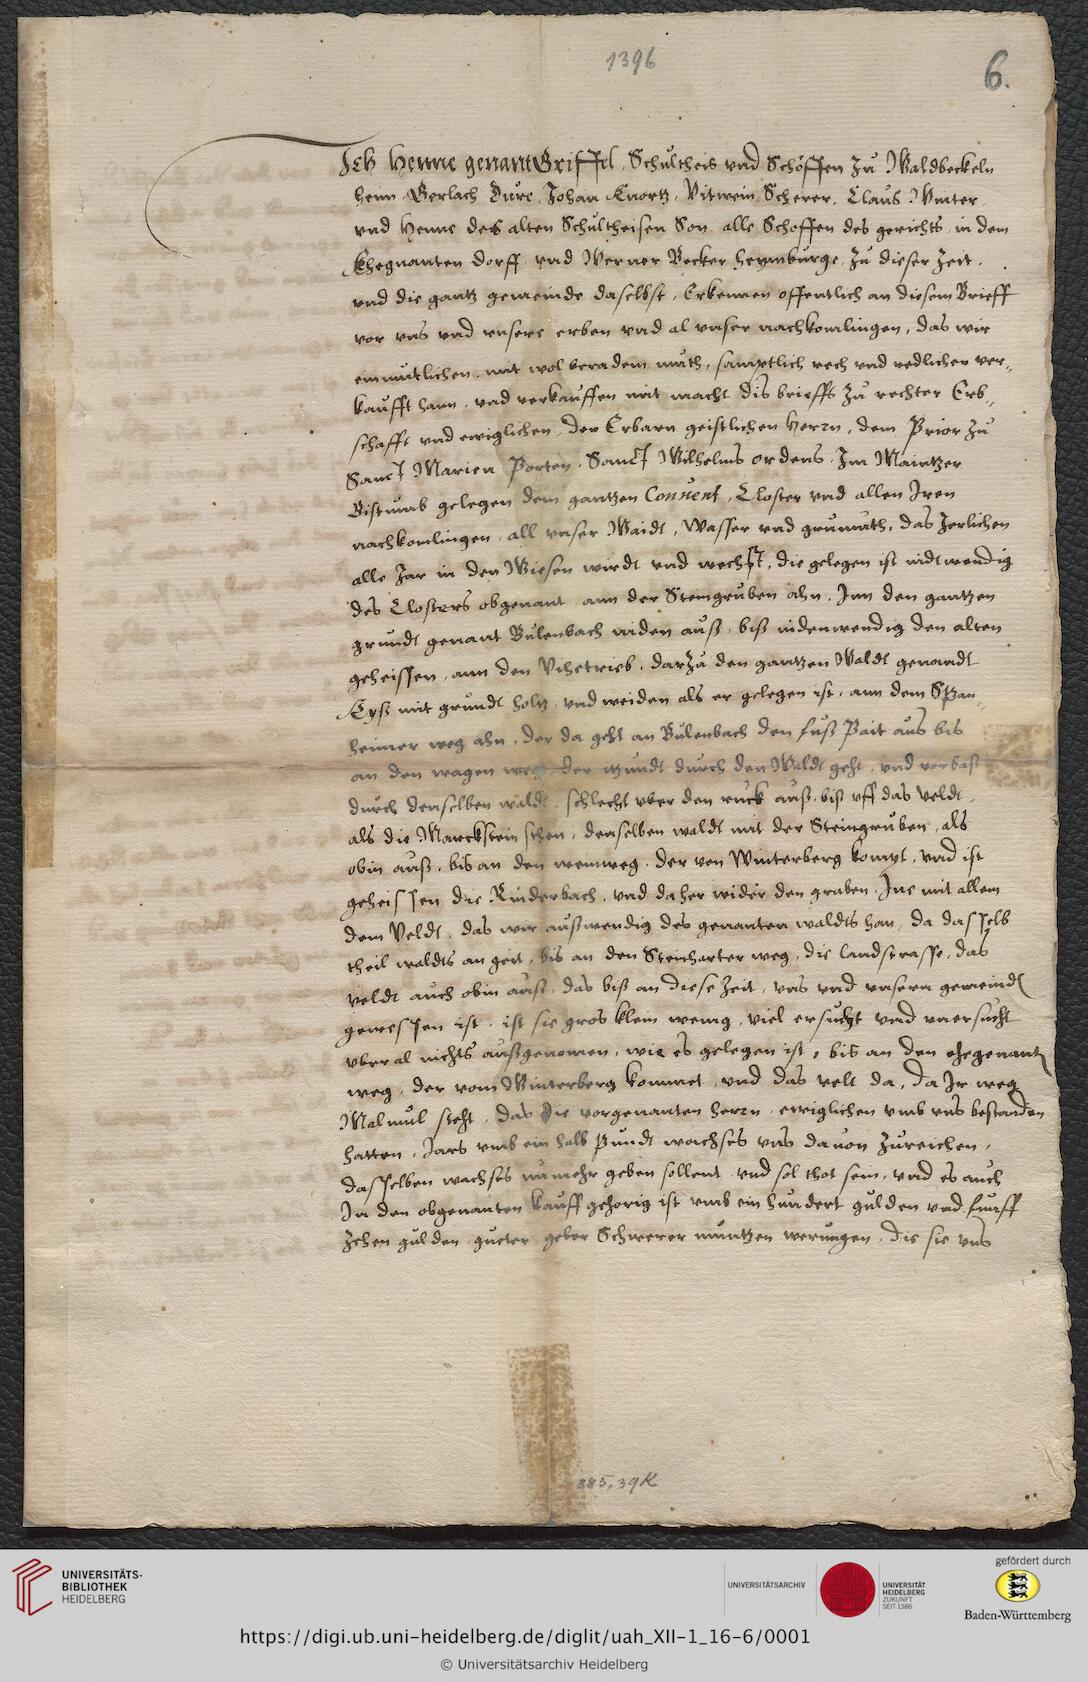 1396
6.
Ich Henne genant Griffel, Schultheis vnd Schöffen zu Waldbeckeln
heim Gerlach Dure, Johan Knortz, Vitwein Scherer, Claus Winter
vnd Henne des alten Schultheisen Son alle Schoffen des gerichts in dem
Ehegnanten dorff vnd Werner Becker heymburge, zu dieser Zeit.
vnd die gantz gemeinde daselbst, Erkennen offentlich an diesem Brieff
vor vns vnd vnsere erben vnd al vnser nachkomlingen, das wir
einmutlichen, mit wol beradem muth, samptlich rech vnd redlichen ver„
kaufft hann, vnd verkauffen mit macht dis brieffs zu rechter Erb„
schafft vnd ewiglichen, den Erbarn geistlichen Herrn, dem Prior zu
Sanct Marien Porten, Sanct Wilhelms ordens, Im Maintzer
Bistumb gelegen dem gantzen Conuent, Closter vnd allen Iren
nachkomlingen, all vnser Waidt, Wasser vnd grumath, das Jerlichen
alle Jar in den Wiesen wirdt vnd wechst, die gelegen ist nidtwendig
des Closters obgenant ann der Steingruben ahn, Inn den gantzen
grundt genant Bulenbach niden auß, biß nidenwendig den alten
geheissen, ann den Vihetrieb, darzu den gantzen Waldt genandt
Eyß mit grundt holtz vnd weiden als er gelegen ist, ann dem Span„
heimer weg ahn, der da geht an Bulenbach den fuß Pait aus bis
an den wagen weg, der itzundt durch den Waldt geht, vnd vorbast
durch denselben waldt, schlecht vber den ruck auß, biß vff das Veldt,
als die Marckstein sthen, denselben waldt mit der Steingruben, als
obin auß, bis an den weinweg, der von Winterberg kompt, vnd ist
geheissen die Rinderbach, vnd da her wider den graben, Inc mit allem
dem Veldt, das wir außwendig des genanten waldts han, da dasselb
theil waldts an geit, bis an den Steincharter weg, die landstrasse, das
veldt auch obin auß, das biß an diese Zeit, vns vnd vnsern gemeinde
gewessen ist, ist sie gros klein wenig, viel ersucht vnd vnersucht
vber al nichts außgenomen, wie es gelegen ist, bis an den ehegenanten
weg, der vom Winterberg kommet, vnd das velt da, da Ir weg
Malmül steht, das die vorgenanten herrn, ewiglichen vmb vns bestanden
hatten, Jars vmb ein halb Pundt wachses vns dauon zureichen,
dasselben wachses nümehr geben sollent vnd sol thot sein, vnd es auch
In den obgenanten kauff gehorig ist vmb ein hundert gulden vnd funff
zehen gulden gueter geber Schwerer müntzen werungen, die sie vns
385,39K
UNIVERSITÄTS-
BIBLIOTHEK
HEIDELBERG
UNIVERSITÄTSARCHIV
UNIVERSITÄT
HEIDELBERG
ZUKUNFT
SEIT 1386
gefördert durch
Baden-Württemberg
https://digi.ub.uni-heidelberg.de/diglit/uah_XII-1_16-6/0001
© Universitätsarchiv Heidelberg